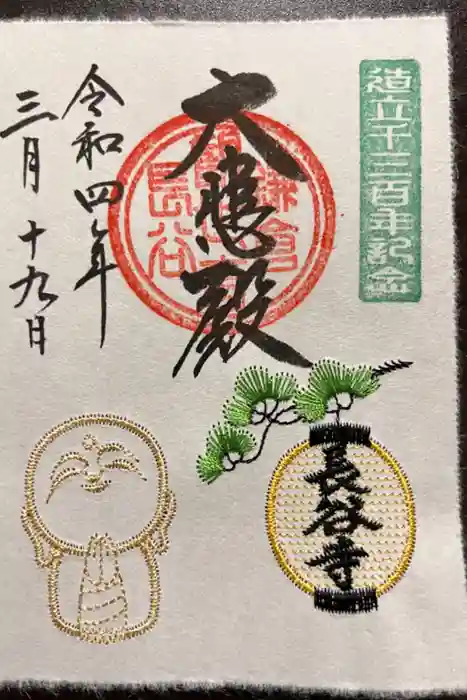 造立千三百年記念
大悲殿
鎌倉
長谷
令和四年
三月十九日
長谷寺